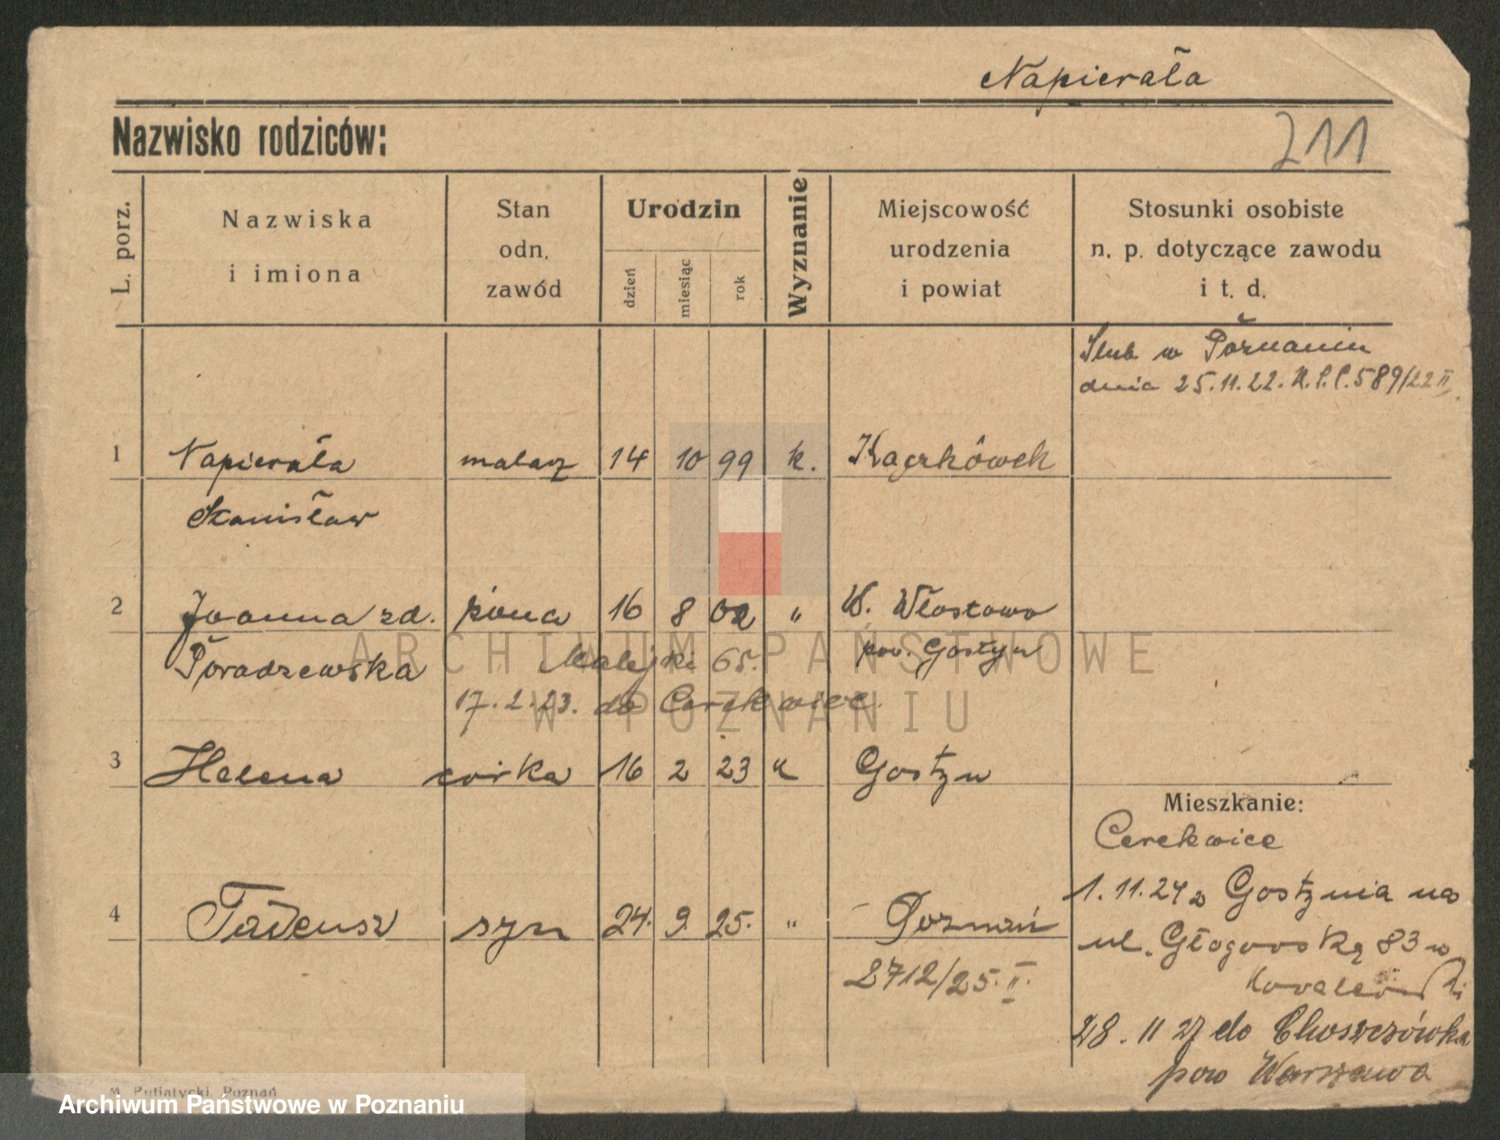 Napierała
Nazwisko rodziców:
211
L. porz.
Nazwiska
i imiona
Stan
odn.
zawód
Urodzin
dzień
miesiąc
rok
Wyznanie
Miejscowość
urodzenia
i powiat
Stosunki osobiste
n. p. dotyczące zawodu
i t. d.
Ślub w Poznaniu
dnia 25.11.22. 589/22 II
1 Napierała malarz 14 10 99 k. Kączkówek
Stanisław
2 Joanna zd. żona 16 8 02 " W. Włostowo
Poradzewska Malejki 65. pow. Gostyń
17.2.23. do Cerekwice
3 Helena córka 16 2 23 " Gostyn
Mieszkanie:
Cerekwice
4 Tadeusz syn 24. 9. 25. " Poznań
1.11.24 z Gostynia na
ul. Głogowską 83 w
2712/25. II.
28. 11 27 do Choszczówka
pow Warszawa
M. Putiatycki, Poznań
ARCHIWUM PAŃSTWOWE
W POZNANIU
Archiwum Państwowe w Poznaniu